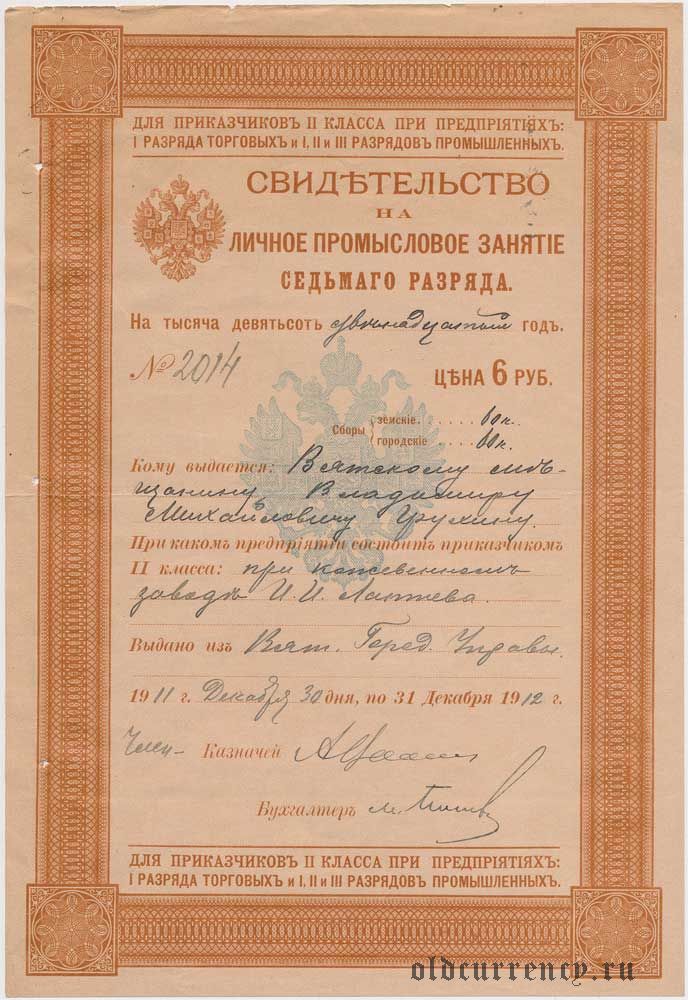 ДЛЯ ПРИКАЗЧИКОВЪ II КЛАССА ПРИ ПРЕДПРІЯТІЯХЪ:
I РАЗРЯДА ТОРГОВЫХЪ и I, II и III РАЗРЯДОВЪ ПРОМЫШЛЕННЫХЪ.
СВИДѢТЕЛЬСТВО
НА
ЛИЧНОЕ ПРОМЫСЛОВОЕ ЗАНЯТІЕ
СЕДЬМАГО РАЗРЯДА.
На тысяча девятьсотъ двѣнадцатый годъ.
№ 2014
ЦѢНА 6 РУБ.
Сборы земскіе . . . . . 60 к.
городскіе . . . . 60 к.
Кому выдается: Вятскому мѣ-
щанину Владиміру
Михайловичу Грухину.
При какомъ предпріятіи состоитъ приказчикомъ
II класса: при кожевенномъ
заводѣ И. И. Лаптева.
Выдано изъ Вят. Город. Управы.
1911 г. Декабря 30 дня, по 31 Декабря 1912 г.
Член- Казначей
Бухгалтеръ
ДЛЯ ПРИКАЗЧИКОВЪ II КЛАССА ПРИ ПРЕДПРІЯТІЯХЪ:
I РАЗРЯДА ТОРГОВЫХЪ и I, II и III РАЗРЯДОВЪ ПРОМЫШЛЕННЫХЪ.
oldcurrency.ru